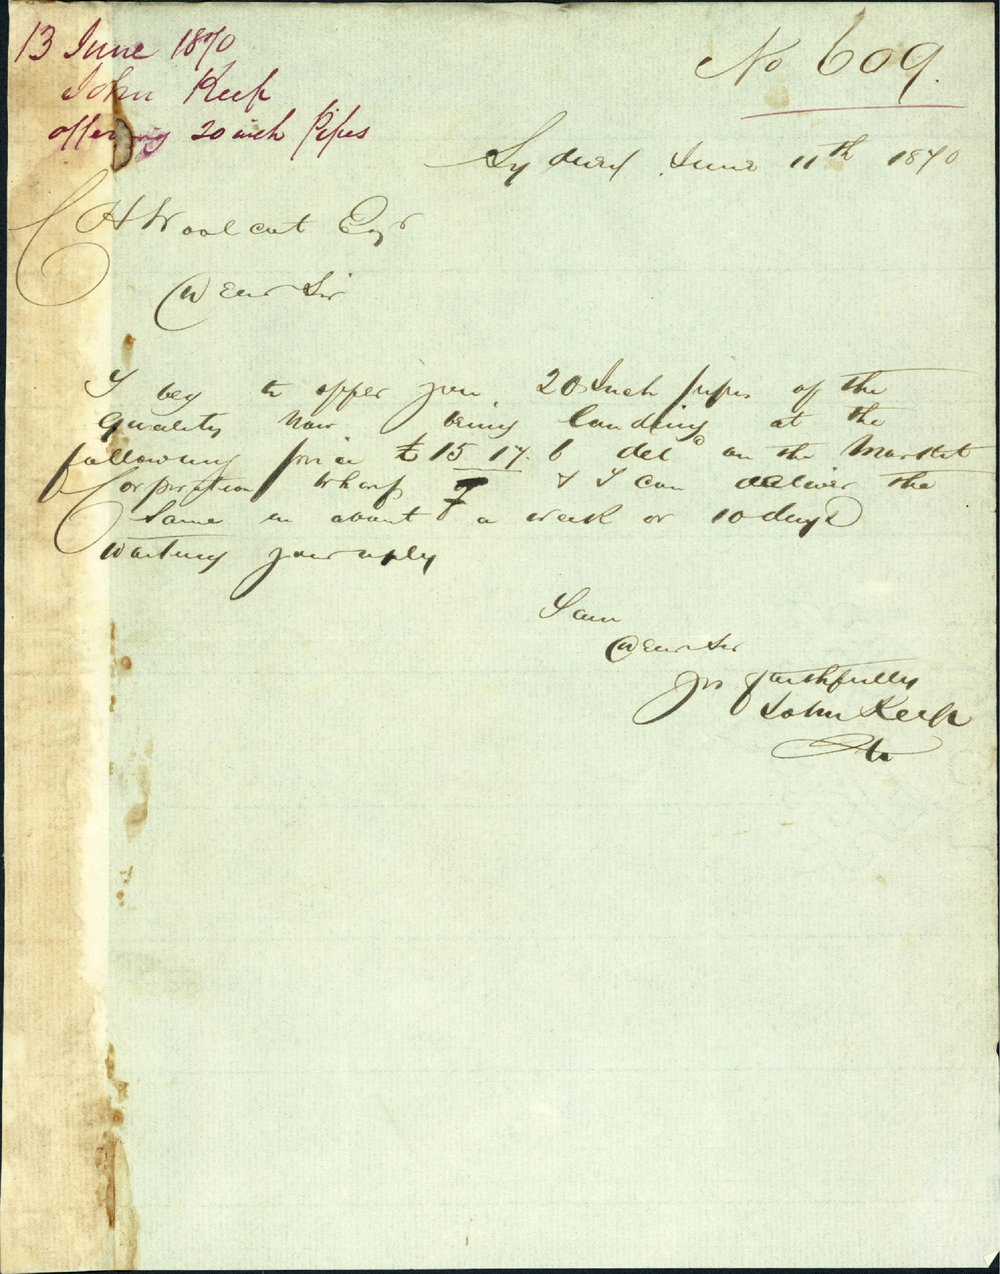 13 June 1870
John Keep
offering 20 inch Pipes
No 609.
Sydney June 11th 1870
C H Woolcott Esqr
Dear Sir
I beg to offer you 20 Inch pipes of the
quality now being landing at the
following price £15 17. 6 deld on the Market
Corporation Wharf & I can deliver the
same in about a week or 10 days
waiting your reply
I am
Dear Sir
yrs faithfully
John Keep